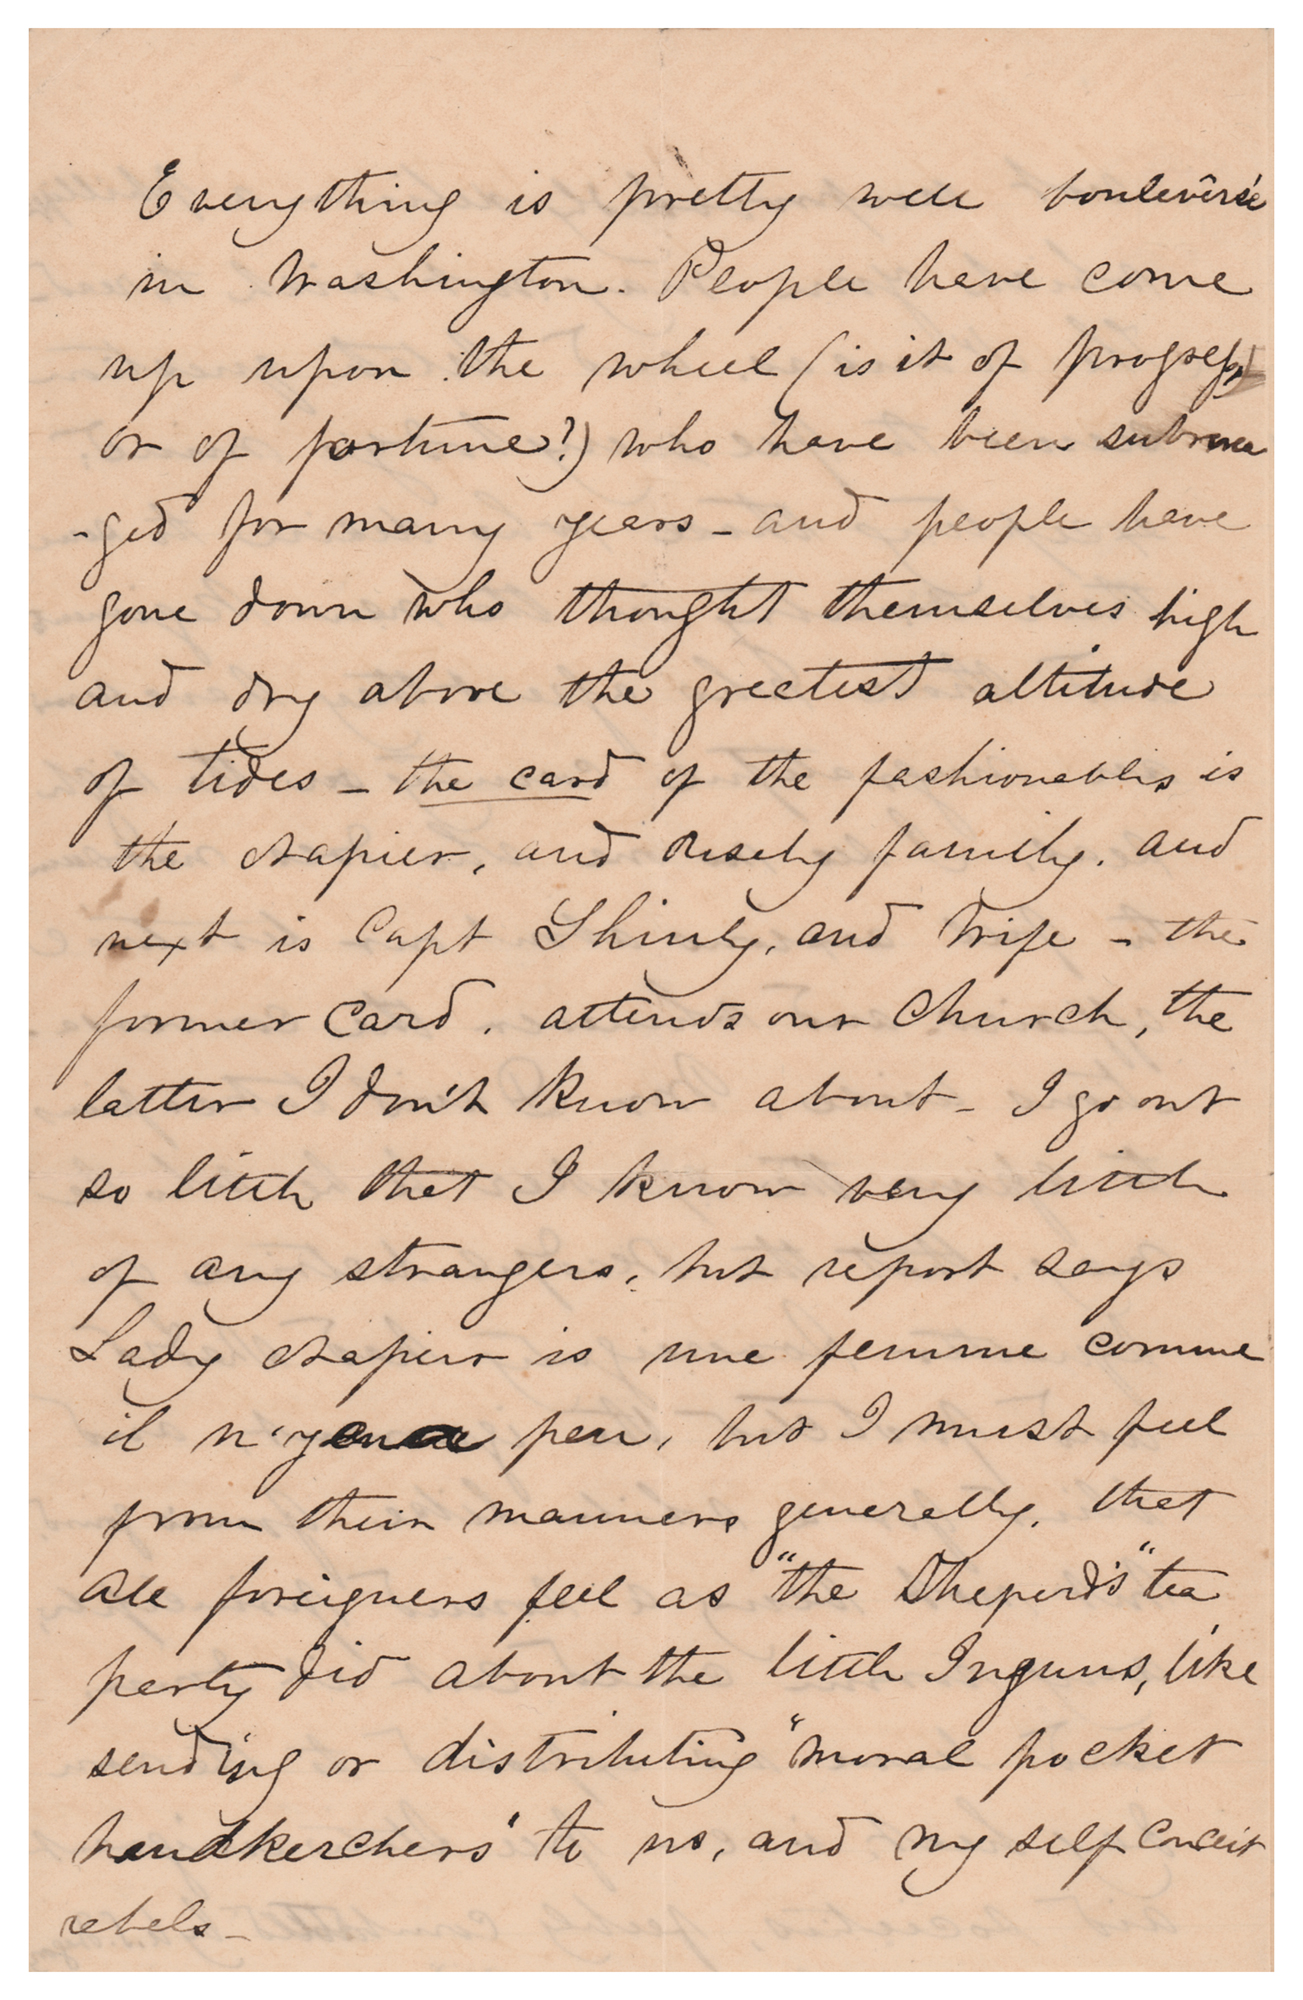 Everything is pretty well boulevêrsée
in Washington. People have come
up upon the wheel (is it of progress,
or of fortune?) who have been subme
-ged for many years – and people have
gone down who thought themselves high
and dry above the greatest altitude
of tides – the card of the fashionables is
the Napier, and family. and
next is Capt and Wife – the
former card. attends our Church, the
latter I don't know about – I go out
so little that I know very little
of any strangers, but report says
Lady Napier is une femme comme
il n'y en a peu, but I must feel
from their manners generally, that
all foreigners feel as "the Sheperd's" tea
party did about the little Inguns, like
sending or distributing "moral pocket
handkerchers" to us, and my self conceit
rebels –